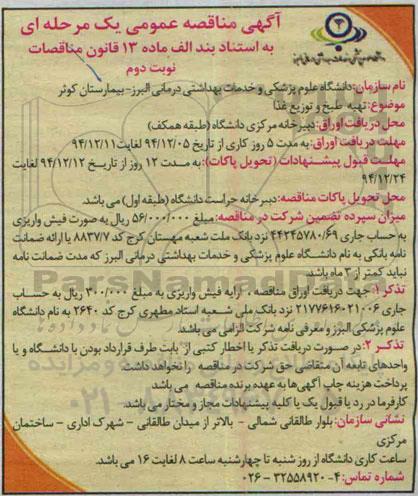 آگهی مناقصه عمومی یک مرحله ای
به استناد بند الف ماده ۱۳ قانون مناقصات
نوبت دوم
نام سازمان: دانشگاه علوم پزشکی و خدمات بهداشتی درمانی البرز- بیمارستان کوثر
موضوع: تهیه طبخ و توزیع غذا
محل دریافت اوراق: دبیرخانه مرکزی دانشگاه (طبقه همکف)
مهلت دریافت اوراق: به مدت ۵ روز کاری از تاریخ ۹۴/۱۲/۰۵ لغایت ۹۴/۱۲/۱۱
مهلت قبول پیشنهادات (تحویل پاکات): به مدت ۱۲ روز از تاریخ ۹۴/۱۲/۱۲ لغایت
۹۴/۱۲/۲۴
محل تحویل پاکات مناقصه: دبیرخانه حراست دانشگاه (طبقه اول) می باشد.
میزان سپرده تضمین شرکت در مناقصه: مبلغ ۵۶/۰۰۰/۰۰۰ ریال به صورت فیش واریزی
به حساب جاری ۴۴۲۴۵۷۸۰/۶۹ نزد بانک ملت شعبه مهستان کرج کد ۸۸۳۷/۷ یا ارائه ضمانت
نامه بانکی به نام دانشگاه علوم پزشکی و خدمات بهداشتی درمانی البرز که مدت ضمانت نامه
نباید کمتر از ۳ ماه باشد.
تذکر ۱: جهت دریافت اوراق مناقصه، ارایه فیش واریزی به مبلغ ۳۰۰/۰۰۰ ریال به حساب
جاری ۲۱۷۷۶۱۶۰۲۱۰۰۶ نزد بانک ملی شعبه استاد مطهری کرج کد ۲۶۴۰ به نام دانشگاه
علوم پزشکی البرز و معرفی نامه شرکت الزامی می باشد.
تذکر ۲: در صورت دریافت تذکر یا اخطار کتبی از بابت طرف قرارداد بودن با دانشگاه و یا
واحدهای تابعه آن متقاضی حق شرکت در مناقصه را نخواهد داشت.
پرداخت هزینه چاپ آگهی ها به عهده برنده مناقصه می باشد.
کارفرما در رد یا قبول یک یا کلیه پیشنهادات مجاز و مختار می باشد.
نشانی سازمان: بلوار طالقانی شمالی - بالاتر از میدان طالقانی - شهرک اداری - ساختمان
مرکزی
ساعت کاری دانشگاه از روز شنبه تا چهارشنبه ساعت ۸ لغایت ۱۶ می باشد.
شماره تماس: ۴-۳۲۵۵۸۹۲۰-۰۲۶